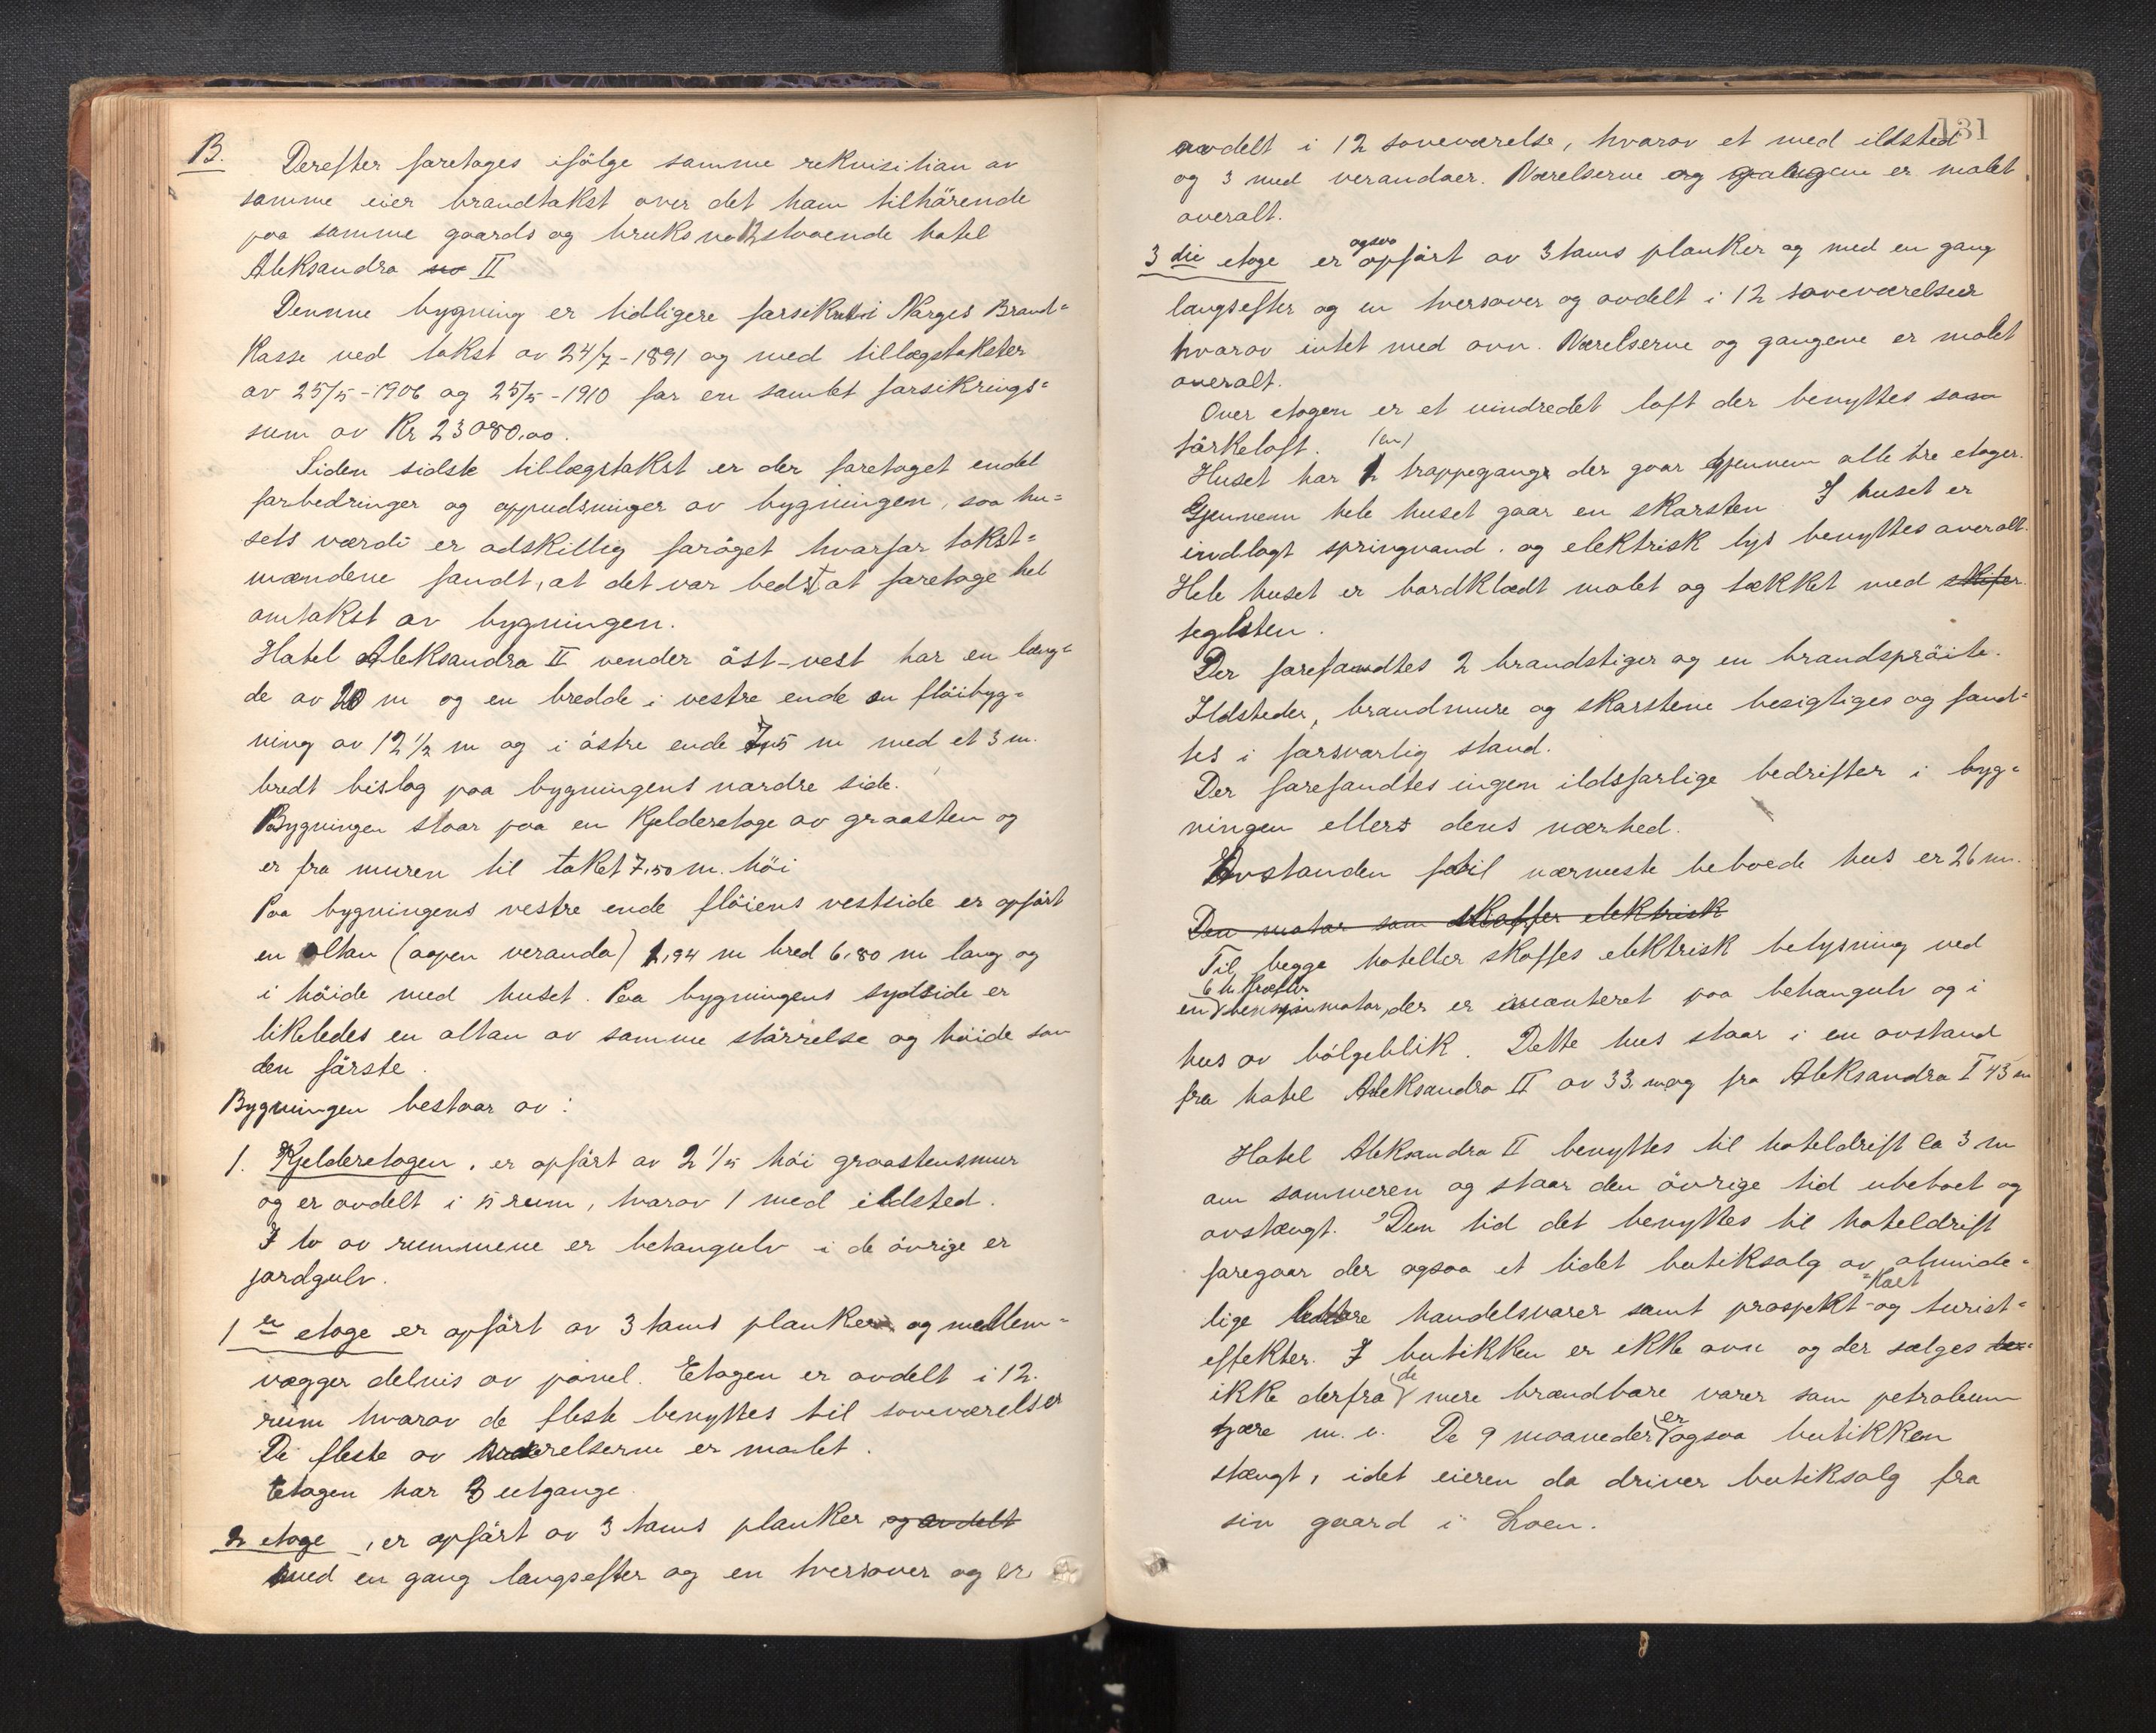 B.
Derefter foretages ifölge samme rekvisition av
samme eier brandtakst over det ham tilhörende
paa samme gaards og bruks no 12 staaende hotel
Aleksandra no II
Denne bygning er tidligere forsikret i Norges Brand=
kasse ved takst av 24/7-1891 og med tillægstakster
av 25/5-1906 og 25/5-1910 for en samlet forsikrings=
sum av Kr 23080,00.
Siden sidste tillægstakst er der foretaget endel
forbedringer og oppudsninger av bygningen, saa hu=
sets værdi er adskillig foröget hvorfor takst=
mændene fandt, at det var bedst at foretage hel
omtakst av bygningen.
Hotel Aleksandra II vender öst-vest har en læng=
de av 20 m og en bredde i vestre ende en flöibyg=
ning av 12 1/2 m og i östre ende 7,5 m med et 3 m.
bredt bislag paa bygningens nordre side.
Bygningen staar paa en Kjelderetage av graasten og
er fra muren til taket 7,50 m. höi
Paa bygningens vestre ende flöiens vestside er opfört
en altan (aapen veranda) 1,94 m bred 6,80 m lang og
i höide med huset. Paa bygningens sydside er
likeledes en altan av samme störrelse og höide som
den förste.
Bygningen bestaar av:
1. Kjelderetagen, er opfört av 2 1/5 höi graastensmur
og er avdelt i 5 rum, hvorav 1 med ildsted.
I to av rummene er betongulv i de övrige er
jordgulv.
1 ste etage er opfört av 3 toms planker og mellem=
vægger delvis av panel. Etagen er avdelt i 12.
rum hvorav de fleste benyttes til soveværelser
De fleste av værelserne er malet.
Etagen har 3 utgange.
2 etage, er opfört av 3 toms planker og avdelt
med en gang langsefter og en tversover og er
131
avdelt i 12 soveværelse, hvorav et med ildsted
og 3 med verandaer. Værelserne og gangene er malet
overalt.
3 die etage er ogsaa opfört av 3 toms planker og med en gang
langsefter og en tversover og avdelt i 12 soveværelser
hvorav intet med ovn. Værelserne og gangene er malet
overalt.
Over etagen er et uindredet loft der benyttes som
törkeloft.
(en)
Huset har 1 trappegang der gaar gjennem alle tre etager.
Gjennem hele huset gaar en skorsten. I huset er
indlagt springvand. og elektrisk lys benyttes overalt.
Hele huset er bordklædt malet og tækket med skifer
teglsten.
Der forefandtes 2 brandstiger og en brandspröite.
Ildsteder, brandmure og skorstene besigtiges og fand=
tes i forsvarlig stand.
Der forefandtes ingen ildsfarlige bedrifter i byg=
ningen ellers dens nærhed.
Avstanden til nærmeste beboede hus er 26 m.
Den motor som skaffer elektrisk
Til begge hoteller skaffes elektrisk belysning ved
6 h. kræfter
en bensinmotor, der er monteret paa betongulv og i
hus av bölgeblik. Dette hus staar i en avstand
fra hotel Aleksandra II av 33. m og fra Aleksandra I 43 m
Hotel Aleksandra II benyttes til hoteldrift ca 3 m
om sommeren og staar den övrige tid ubeboet og
avstængt. Den tid det benyttes til hoteldrift
foregaar der ogsaa et lidet butiksalg av alminde=
lige lettere handelsvarer samt prospekt-kort og turist=
effekter. I butikken er ikke ovn og der sælges
ikke derfra de mere brændbare varer som petroleum
tjære m. v. De 9 maaneder er ogsaa butikken
stængt, idet eieren da driver butiksalg fra
sin gaard i Loen.